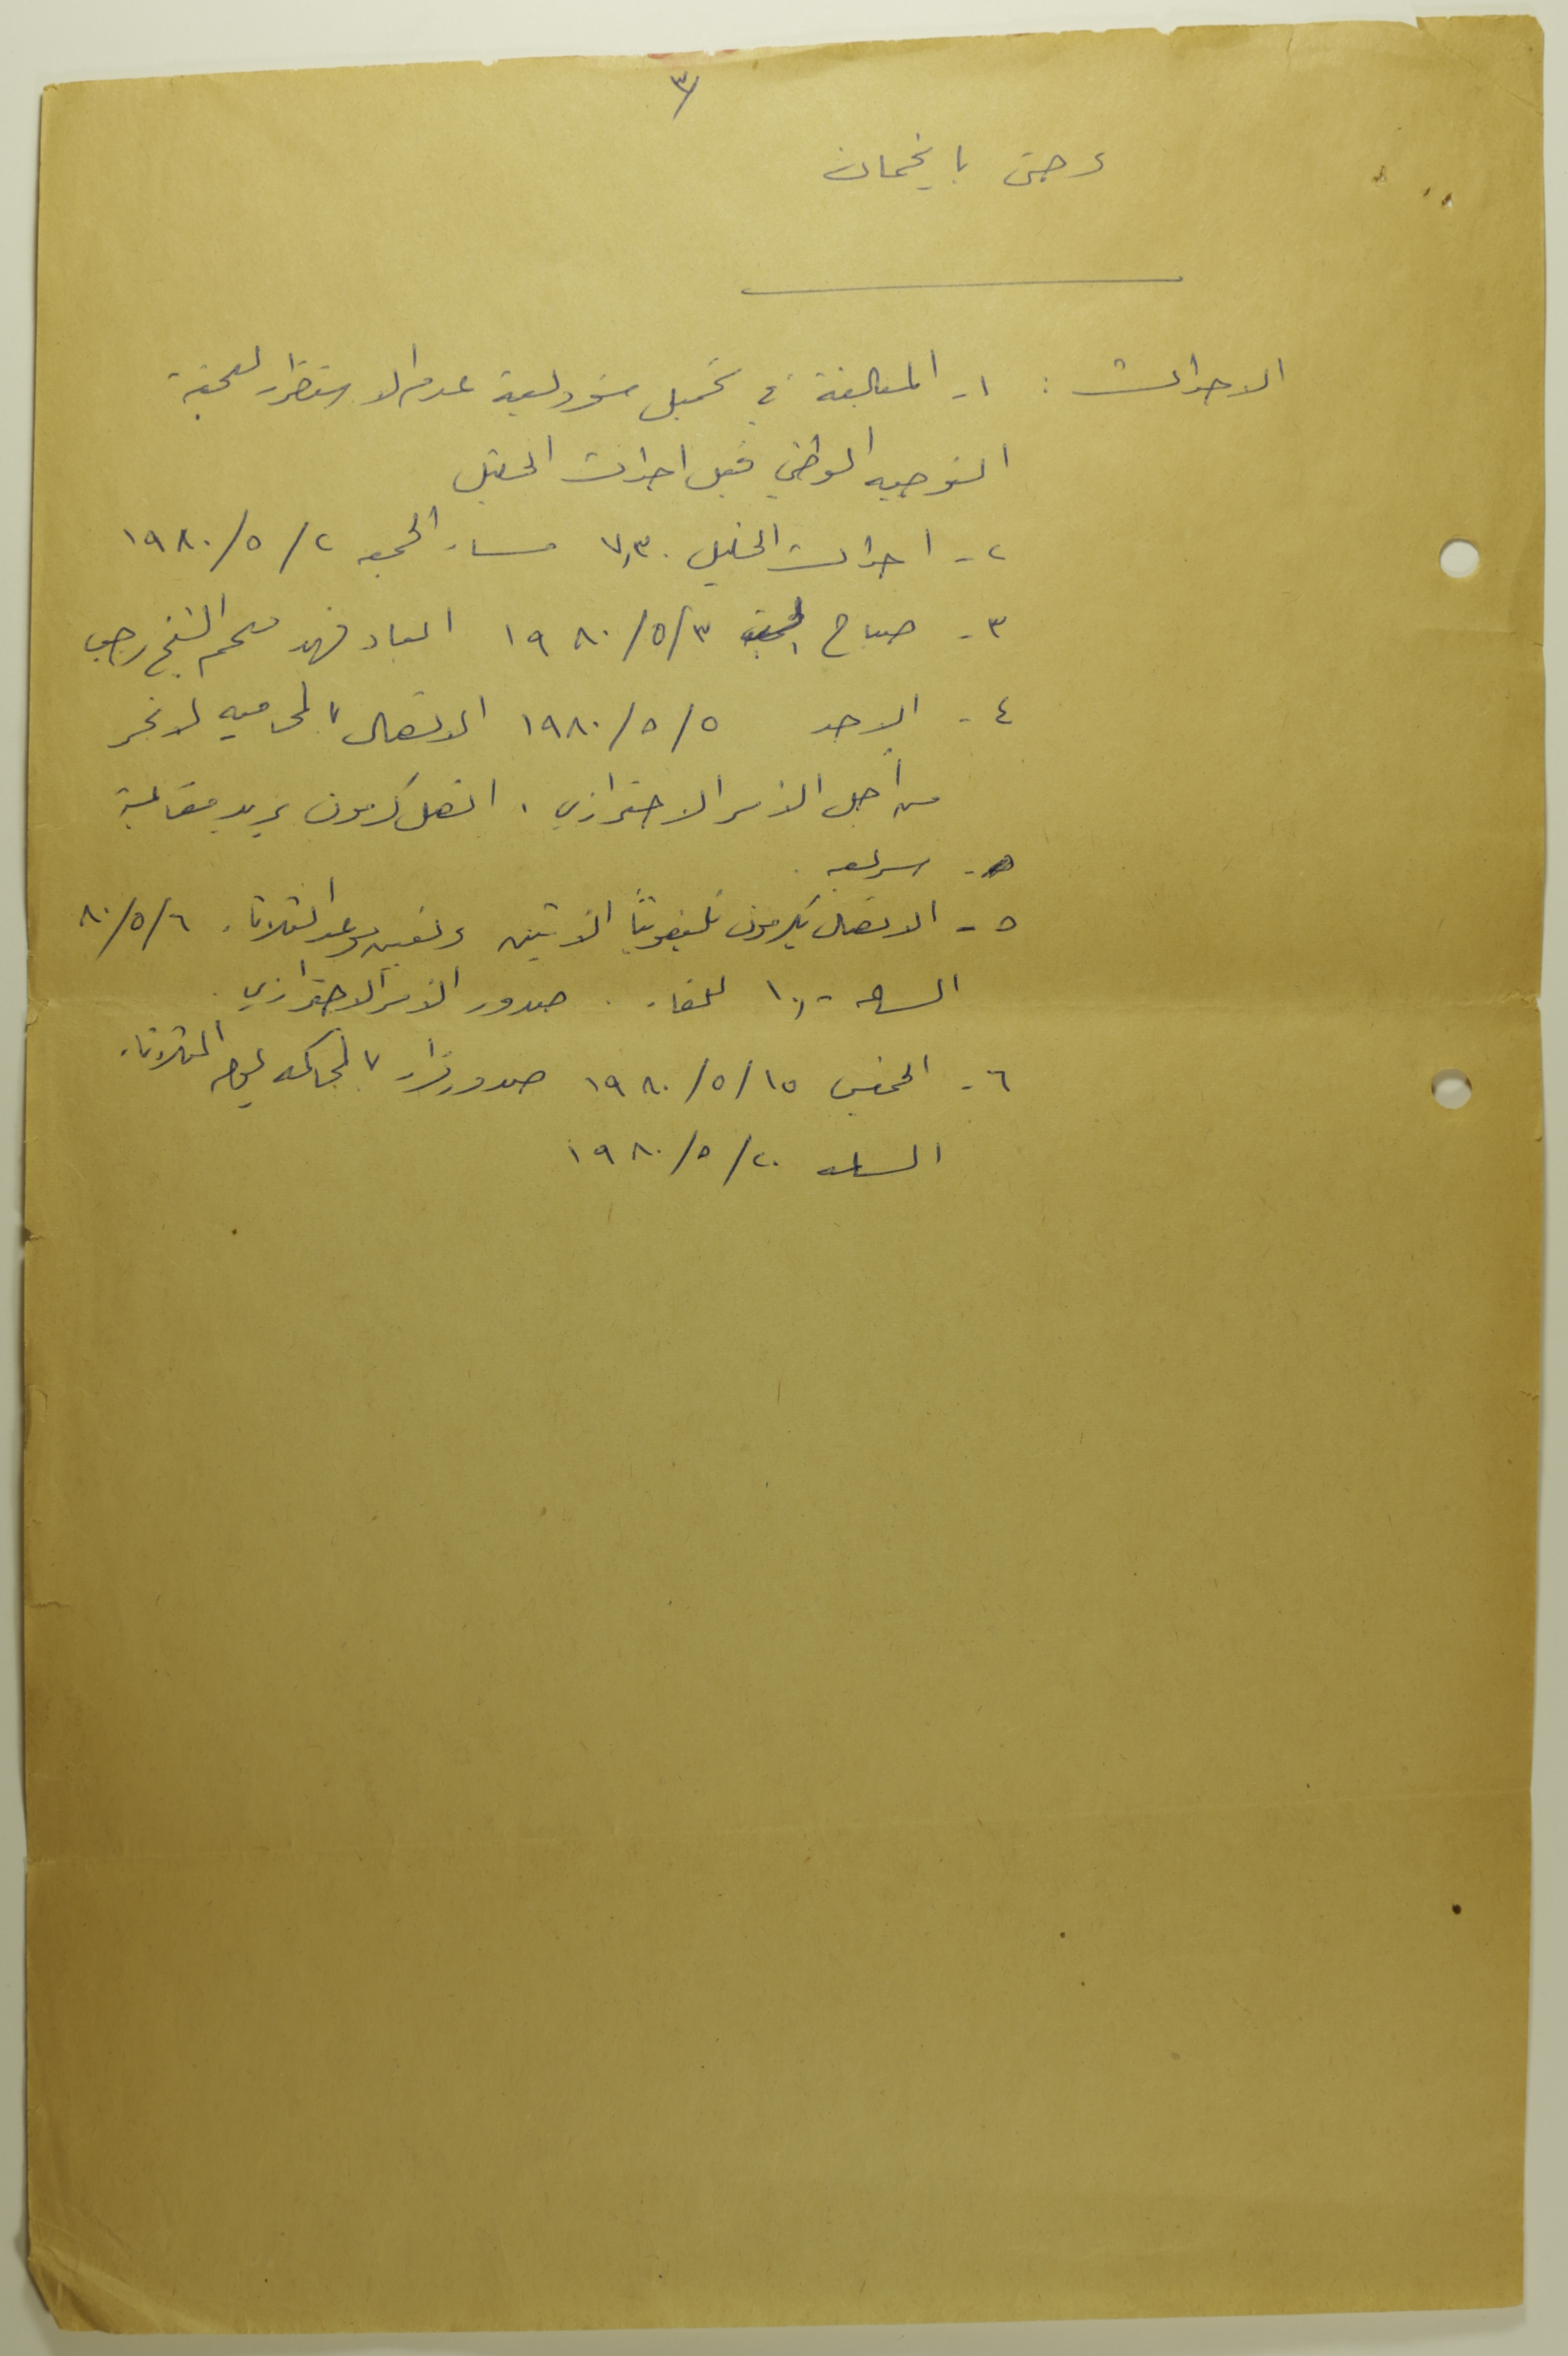 ٣/
وحتى بايخمان
الاحداث : ١- المبالغة في تحميل مسؤولية عدم الاستقرار للجنة
التوجيه الوطني قبل احداث الخليل
٢- احداث الخليل ٧,٣٠ مساء الجمعه ٢/٥/١٩٨٠
٣- صباح ٣/٥/١٩٨٠ ابعاد فهد ملحم الشيخ رجب
٤- الاحد ٥/٥/١٩٨٠ الاتصال بالمحاميه لانجر
من أجل الأمر الاحترازي . اتصل كرمون يريد مقابلة
سريعه .
٥- الاتصال بكرمون تليفونياً الاثنين وتعيين موعد الثلاثاء ٦/٥/٨٠
الساعه ١٠,٠٠ للقاء . صدور الأمر الاحترازي .
٦- الخميس ١٥/٥/١٩٨٠ صدور قرار بالمحاكمه ليوم الثلاثاء
٢٠/٥/١٩٨٠